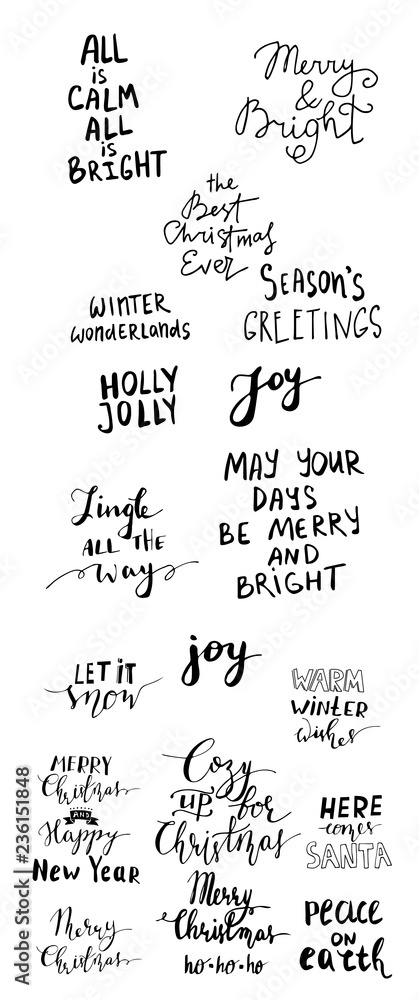 ALL
is
CALM
ALL
is
BRIGHT
Merry
&
Bright
the
Best
Christmas
Ever
WINTER
wonderlands
SEASON'S
GREETINGS
HOLLY
JOLLY
Joy
Jingle
ALL THE
way
MAY YOUR
DAYS
BE MERRY
AND
BRIGHT
LET iT
snow
joy
WARM
winter
wishes
MERRY
Christmas
AND
Happy
New Year
Cozy
up for
Christmas
HERE
comes
SANTA
Merry
Christmas
Merry
Christmas
ho-ho-ho
peace
on
earth
Adobe Stock | #236151848